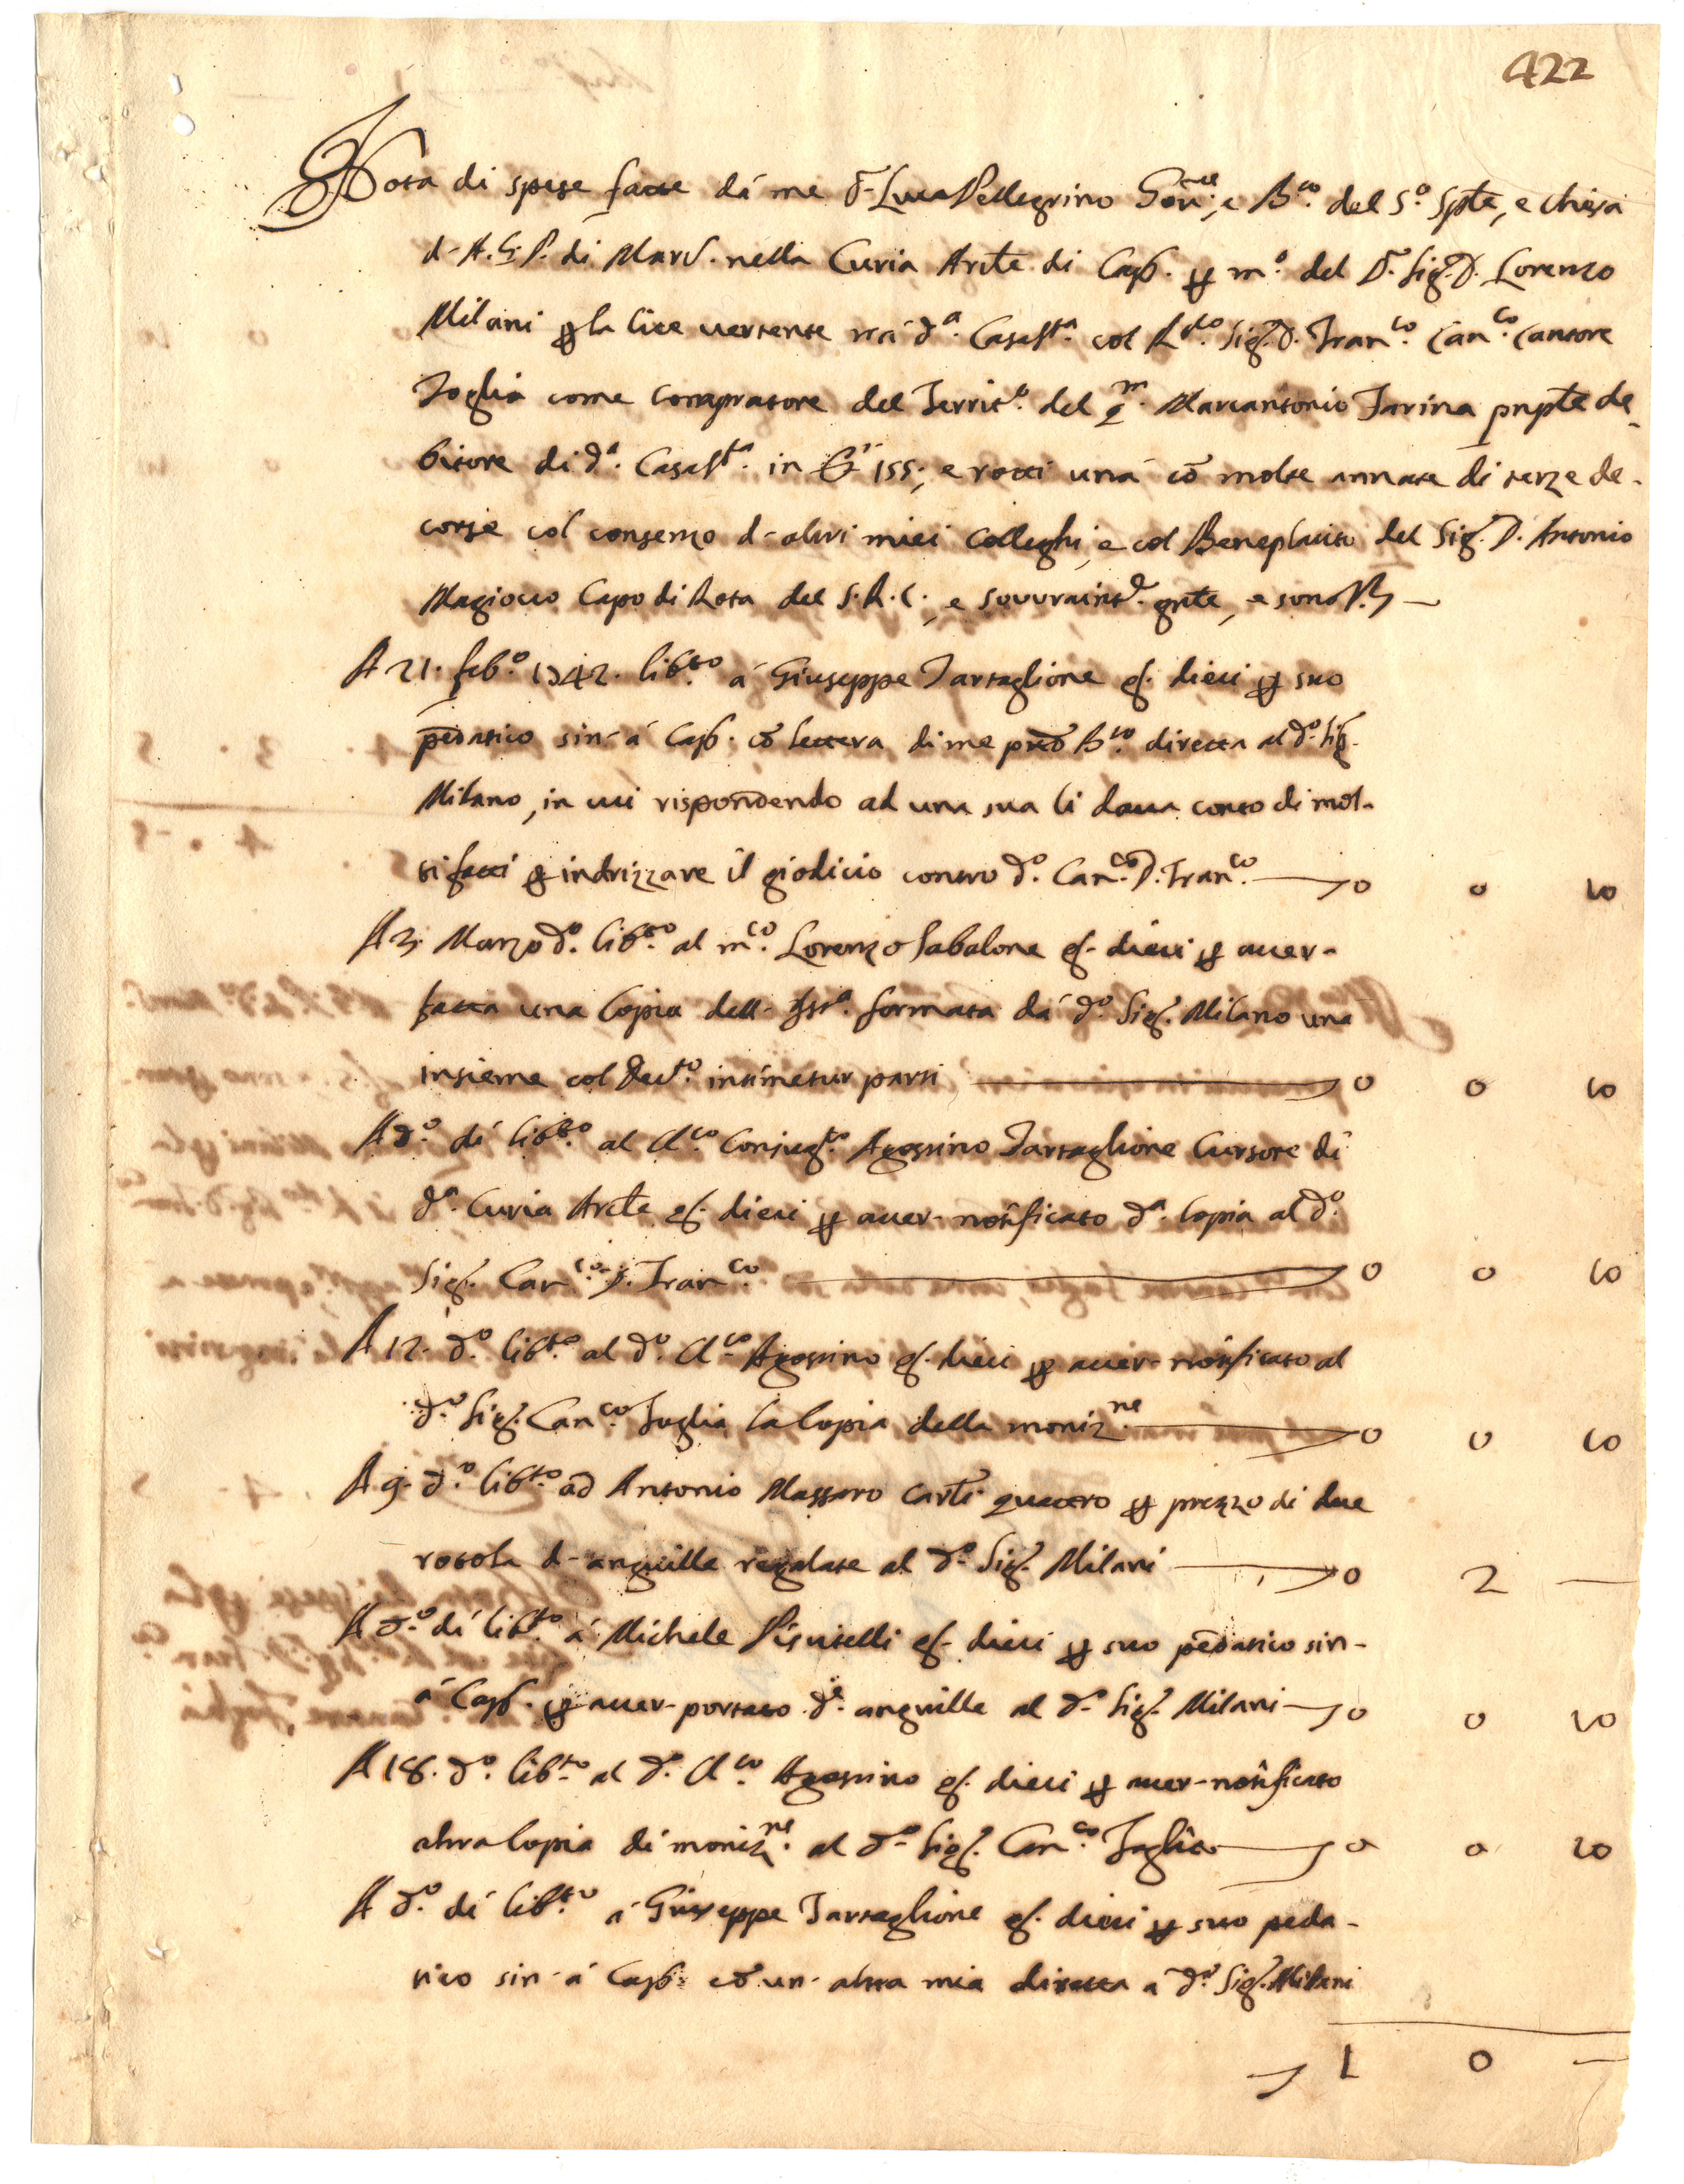 422
Nota di spese fatte dá me D. Luca Pellegrino Gov.re, e B.ro del S.o Spte, e chiesa
d'A.G.P. di Marc. nella Curia Arcte di Cap. p m.o del D. Sig. D. Lorenzo
Milani p la lite vertente trá d.a Casa S.ta col R.do Sig. D. Fran.co Can.co Cantore
Foglia come compratore del Territ.o del q.m Marcantonio Farina pnpte de-
bitore di d.a Casa S.ta in 155; e rotti unà cō molte annate di terze de-
corse col consenzo d'altri miei colleghi, e col Beneplacito del Sig. D. Antonio
Magiocco Capo di Rota del S.R.C., e sovraint.e gnte, e sono
A 21. feb.o 1742. lib.to á Giuseppe Tartaglione g. dieci p suo
pedatico sin'á Cap. cō lettera di me pto B.ro diretta al d.o Sig.
Milano, in cui rispondendo ad una sua li dava conto di mol-
ti fatti p indrizzare il giodicio contro d.o Can.co D. Fran.co 0 0 10
A 3. Marzo d.o lib.to al m.co Lorenzo Sabalone g. dieci p aver-
fatta una Copia dell' Ist.a formata dá d.o Sig. Milano una
insieme col Dec.to intimetur parti 0 0 10
A d.o dí lib.to al Cl.co Coniug.to Agostino Tartaglione Cursore di
d.a Curia Arcte g. dieci p aver notificato d.a Copia al d.o
Sig. Can.co D. Fran.co 0 0 10
A 12. d.o lib.to al d.o Cl.co Agostino g. dieci p aver notificato al
d.o Sig. Can.co Foglia la Copia della moniz.ne 0 0 10
A 9. d.o lib.to ad Antonio Massaro carl. quattro p prezzo di due
rotola d'anguille regalate al d.o Sig. Milani 0 2 —
A d.o dí lib.to á Michele Piscitelli g. dieci p suo pedatico sin-
á Cap. p aver portato d.e anguille al d.o Sig. Milani 0 0 10
A 18. d.o lib.to al d.o Cl.co Agostino g. dieci p aver notificato
altra Copia di moniz.ne al d.o Sig. Can.co Foglia 0 0 10
A d.o dí lib.to á Giuseppe Tartaglione g. dieci p suo peda-
tico sin'á Cap. cō un'altra mia diretta á d.o Sig. Milani
1 0 —